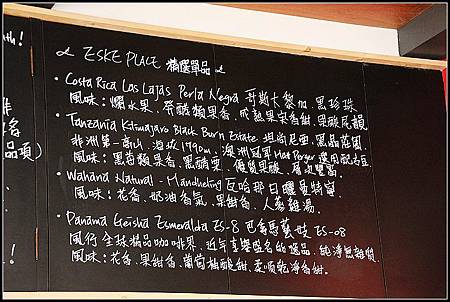 ESKE PLACE 精選單品
• Costa Rica Las Lajas Perla Negra 哥斯大黎加 黑珍珠
風味：爛水果、帶酷類果香、成熟果實香甜 果酸尾韻
• Tanzania Kilimajaro Black Burn Estate 坦尚尼亞. 黑晶莊園
非洲第一高山. 海拔1790m. 澳洲冠軍 選用配方豆
風味：黑莓類果香. 黑醋栗. 優質果酸. 層次豐富.
• Wahana Natural - Mandheling 瓦哈那日曬曼特寧
風味：花香. 奶油香氣. 果甜香. 人蔘雞湯.
• Panama Geisha Esmeralda ES-8 巴拿馬藝妓 ES-08
風行全球精品咖啡界. 近年享譽盛名的逸品. 純淨無雜質
風味：花香. 果甜香. 葡萄柚酸甜. 柔順乾淨香甜.
品項)